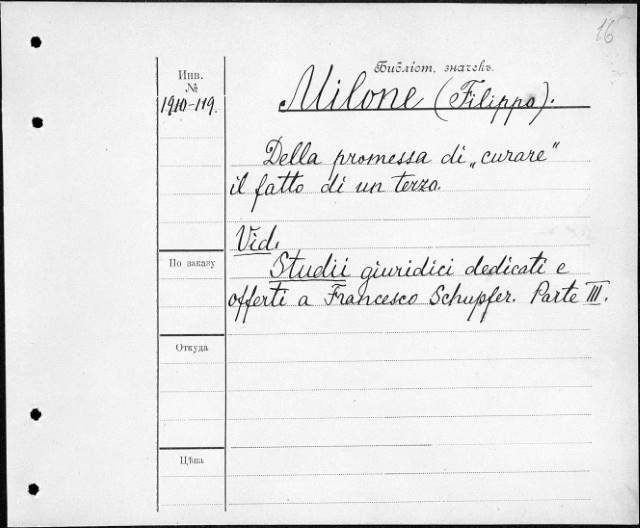 16
Библіот. значекъ.
Инв.
№
1910-119.
Milone (Filippo).
Della promessa di „curare”
il fatto di un terzo.
Vid.
Studii giuridici dedicati e
offerti a Francesco Schupfer. Parte III.
По заказу
Откуда
Цѣна